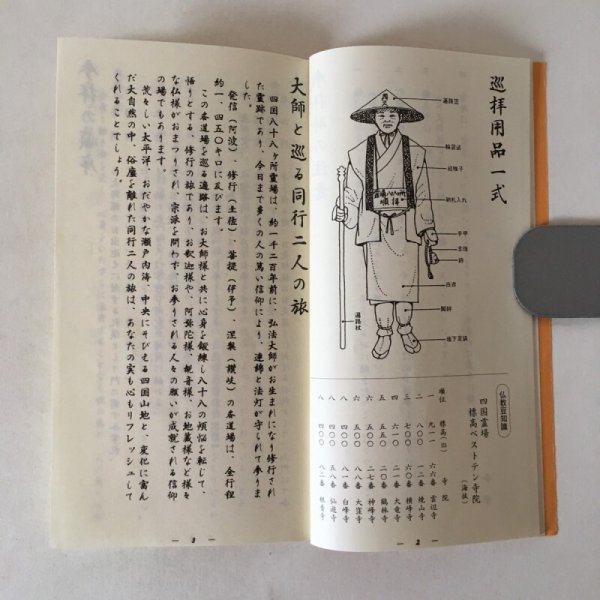 巡拝用品一式
遍路笠
輪袈裟
納札入れ
手甲
念珠
鈴
白衣
脚絆
地下足袋
遍路杖
仏教豆知識
四国霊場
標高ベストテン寺院
(海抜)
順位 標高(m) 寺院
一 九一一 六六番 雲辺寺
二 八〇〇 一二番 焼山寺
三 七〇〇 六〇番 横峰寺
四 六〇〇 二一番 大竜寺
五 二〇番 鶴林寺
六 二七番 神峰寺
六 八八番 大窪寺
八 四〇〇 八一番 白峰寺
八 四〇〇 五八番 仙遊寺
八 四〇〇 八二番 根香寺
— 2 —
大師と巡る同行二人の旅
四国八十八ヶ所霊場は、約一千二百年前に、弘法大師がお生まれになり修行され
た霊跡であり、今日まで多くの人の篤い信仰により、連綿と法灯が守られて参りま
した。
発信(阿波)、修行(土佐)、菩提(伊予)、涅槃(讃岐)の各道場は、全行程
約一、四五〇キロに及びます。
この各道場を巡る遍路は、お大師様と共に心身を鍛練し八十八の煩悩を転じて、
悟りとする、修行の旅であり、お釈迦様や、阿弥陀様、観音様、お地蔵様など様々
な仏様がおまつりされ、宗派を問わず、お参りされる人々の願いが成就される信仰
の場でもあります。
荒々しい太平洋、おだやかな瀬戸内海、中央にそびえる四国山地と、変化に富ん
だ大自然の中、俗塵を離れた同行二人の旅は、あなたの実も心もリフレッシュして
くれることでしょう。
— 3 —